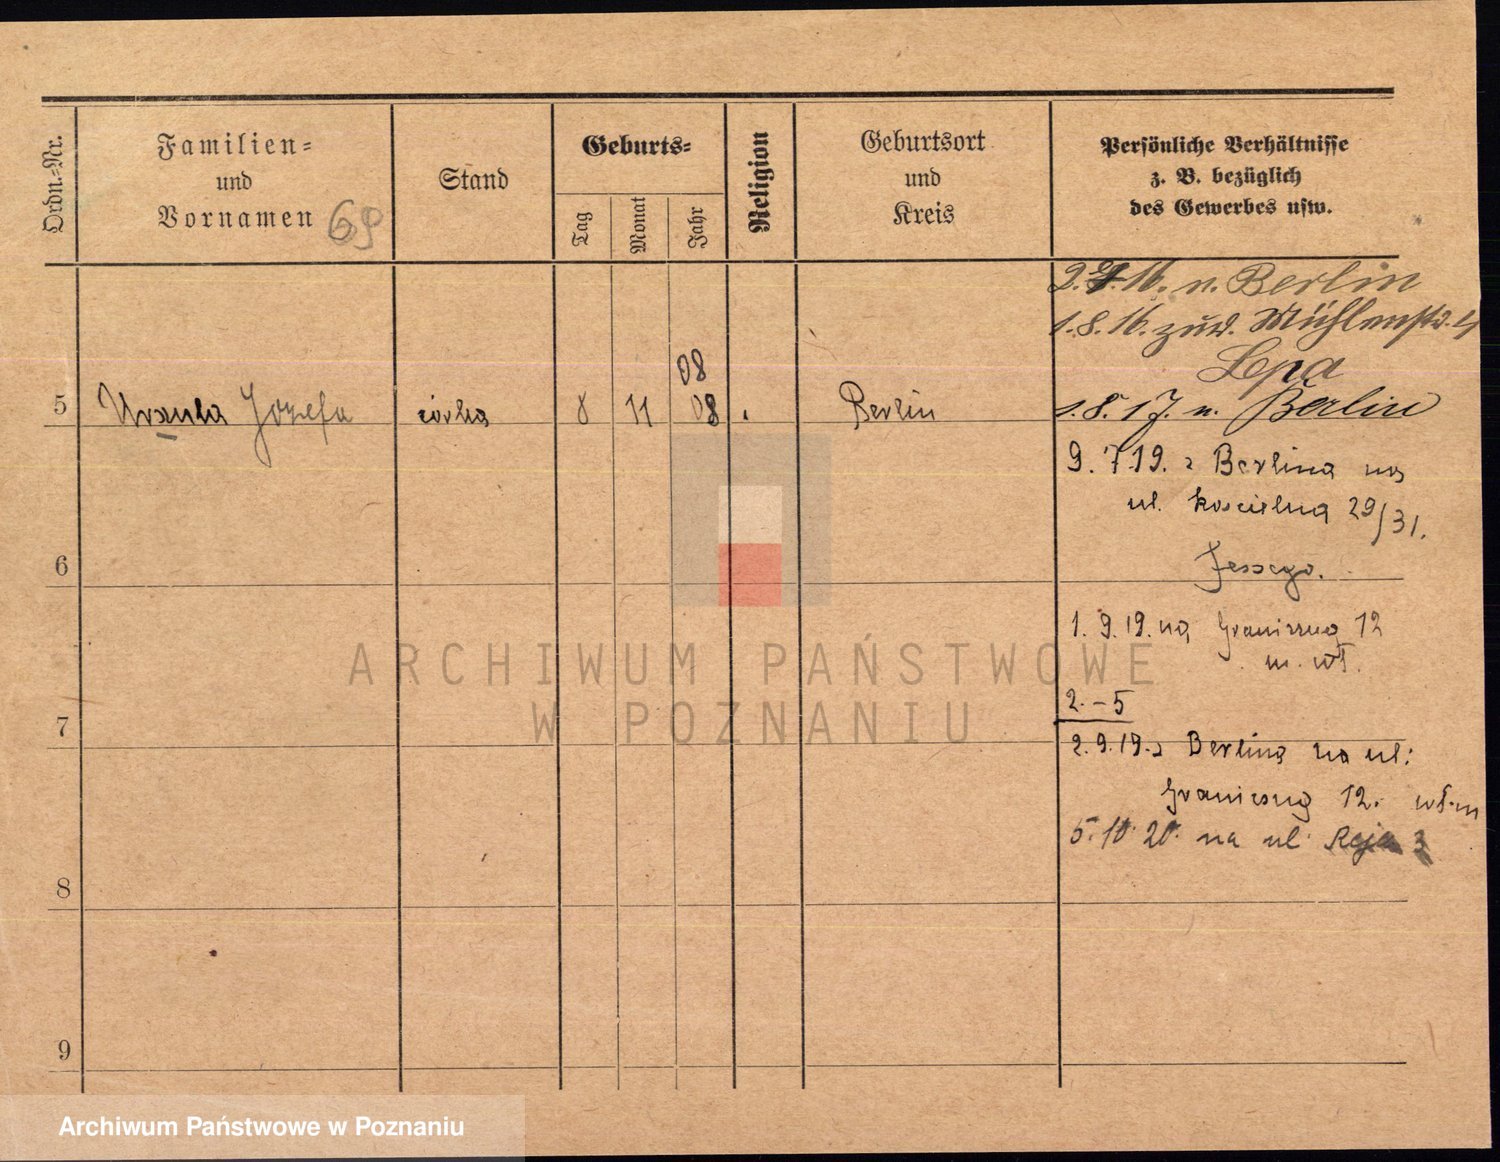 Ordn.-Nr.
Familien-
und
Vornamen
69
Stand
Geburts-
Tag
Monat
Jahr
Religion
Geburtsort
und
Kreis
Persönliche Verhältnisse
z. B. bezüglich
des Gewerbes usw.
16. n. Berlin
1.8.16. zuw. Mühlenstr.
Lepa
08
5 Urszula Józefa córka 8 11 08 Berlin
1.8.17. n. Berlin
9.7.19. z Berlina na
ul. Kościelną 29/31.
6
Jessego.
1.9.19. na Graniczną 12
m. wł.
2.-5
7
2.9.19. z Berlina na ul:
Graniczną 12. wł. m
5.10.20. na ul. Reja 3
8
9
ARCHIWUM PAŃSTWOWE
W POZNANIU
Archiwum Państwowe w Poznaniu